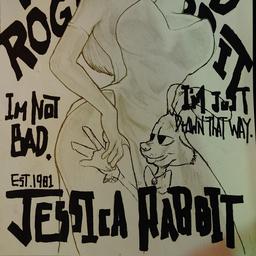 ROG
IT
I'M NOT
BAD.
I'M JUST
DRAWN THAT WAY.
EST. 1981
JESSICA RABBIT